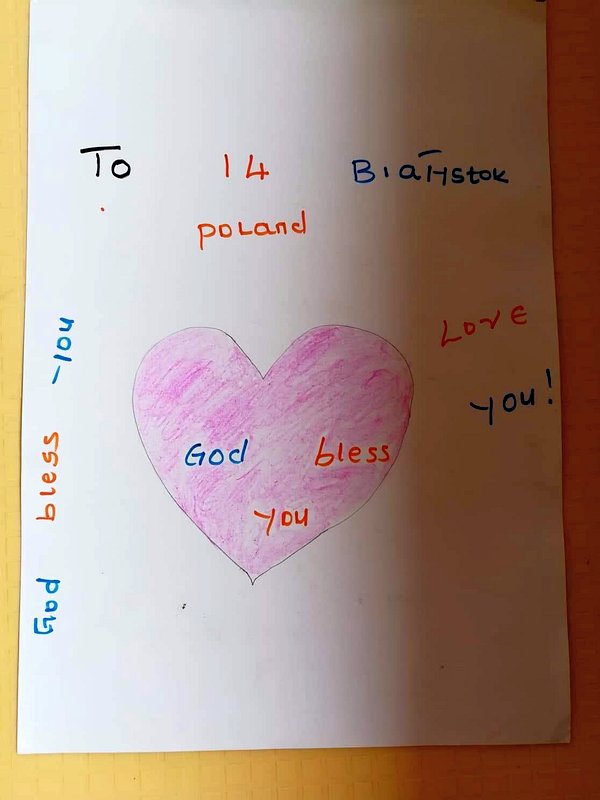 To 14 Białystok
poland
Love
you!
God bless
you
God bless you